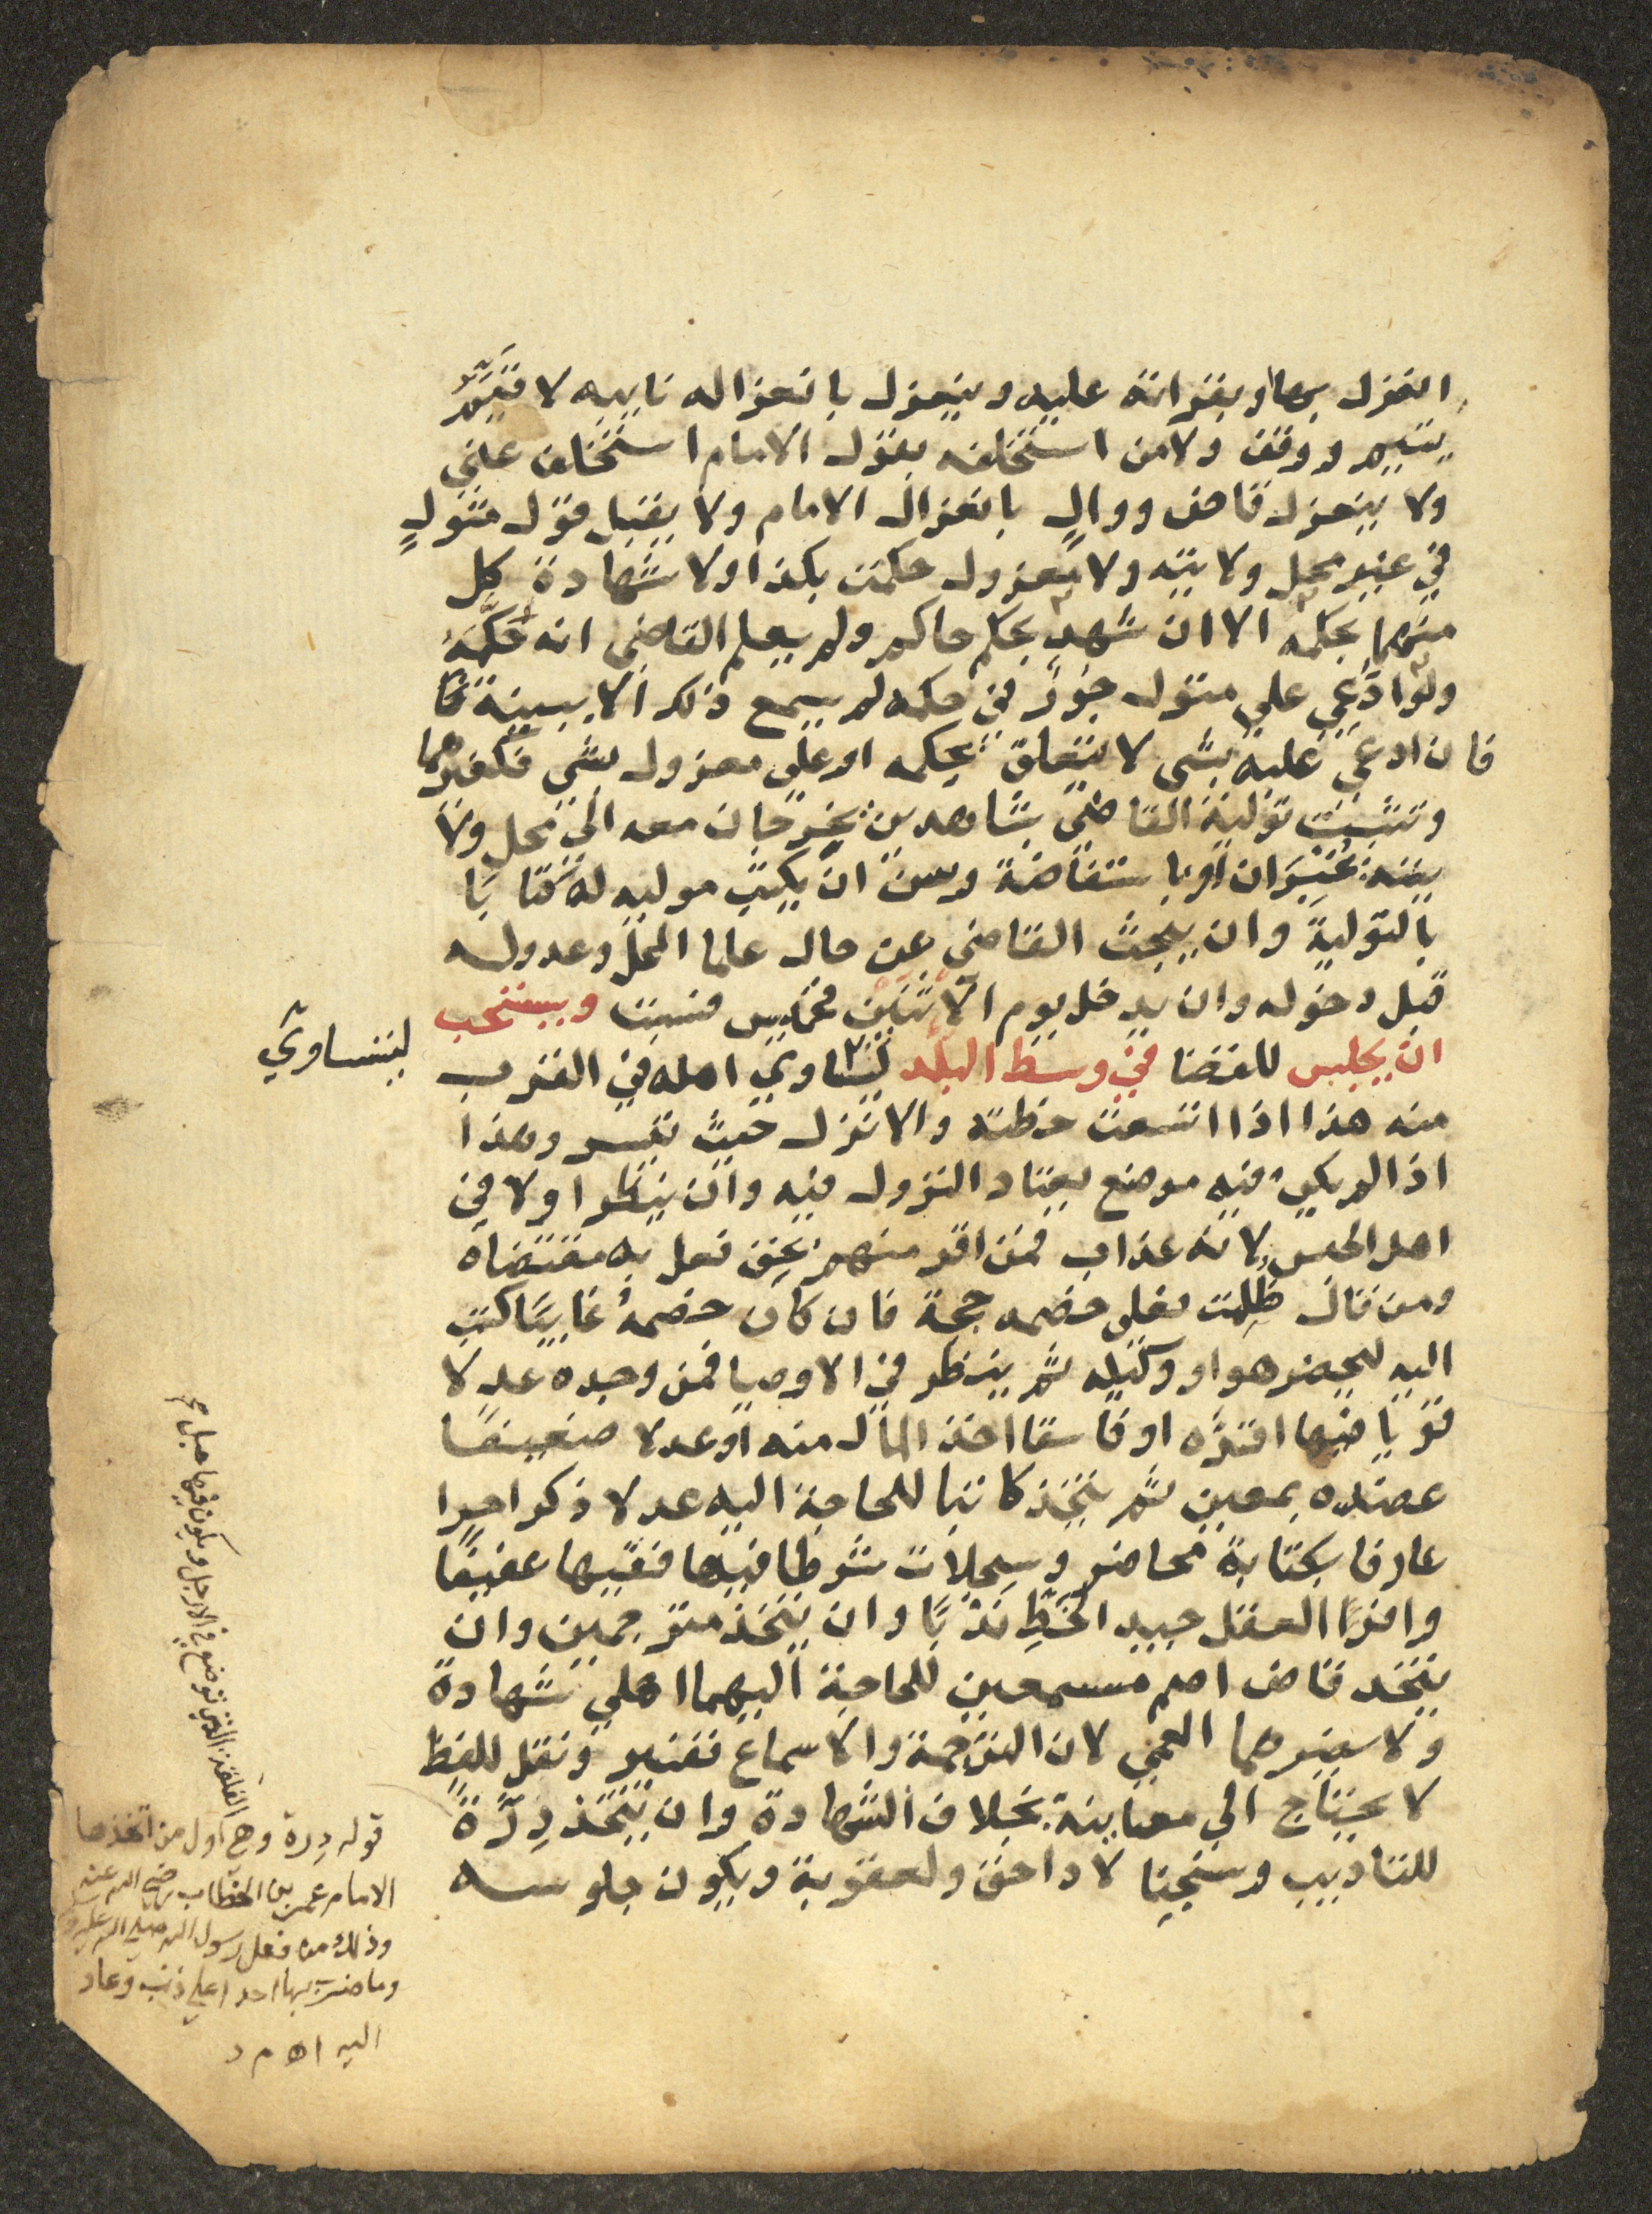 انعزل بها او بقراته عليه وينعزل بانعزاله نايبه لا قيّم
يتيم ووقف ولا من استخلفه بقول الامام استخلف عني
ولا ينعزل قاض ووالٍ بانعزال الامام ولا يقبل قول متولٍ
في غير محل ولايته ولا معزول حكمت بكذا ولا شهادة كل
منهما بحكمه الا ان شهد بحكم حاكم ولم يعلم القاضي انه حكمه
ولو ادعي على متول جور في حكمه لم يسمع ذلك الا ببينة فا
فان ادعي عليه بشي لا يتعلق بحكمه او على معزول بشي فكغيرهما
وتثبت تولية القاضي بشاهدين يخرجان معه الى محل ولا
يته يخبران او باستفاضة وسن ان يكتب موليه له كتابا
بالتولية وان يبحث القاضي عن حال علما المحل وعدوله
قبل دخوله وان يدخل يوم الاثنين فخميس فسبت ويستحب
ان يجلس للقضا في وسط البلد ليتساوي اهله في القرب
ليتساوي
منه هذا اذا اتسعت خطته والا نزل حيث تيسر وهذا
اذا لم يكن فيه موضع يعتاد النزول فيه وان ينظر اولا في
اهل الحبس لانه عذاب فمن اقر منهم بحق فعل به مقتضاه
ومن قال ظلمت فعلى خصمه حجة فان كان خصمه غايبا كتب
اليه ليحضر هو او وكيله ثم ينظر في الاوصيا فمن وجده عدلا
قويا فيها اقرّه او فاسقا اخذ المال منه او عدلا ضعيفا
عضده بمعين ثم يتخذ كاتبا للحاجة اليه عدلا ذكرا حرا
عارفا بكتابة محاضر وسجلات شرطا فيها فقيها عفيفا
وافرا العقل جيد الخط ندبًا وان يتخذ مترجمين وان
يتخد قاض اصم مسمعين للحاجة اليهما اهلي شهادة
ولا يضرهما العمي لان الترجمة والاسماع تفسير ونقل للفظ
لا يحتاج الى معاينة بخلاف الشهادة وان يتخذ دِرّة
للتاديب وسجنا لادا حق ولعقوبة ويكون جلوسه
قوله دِرة وهي اول من اتخذها
الامام عمر بن الخطاب رضي الله عنه
وذلك من فعل رسول الله صلى الله عليه وسلم
وما ضرب بها احدا على ذنب وعاد
اليه اه م د
الفلقة التي توضع في الارجل ويكون فيها حبل